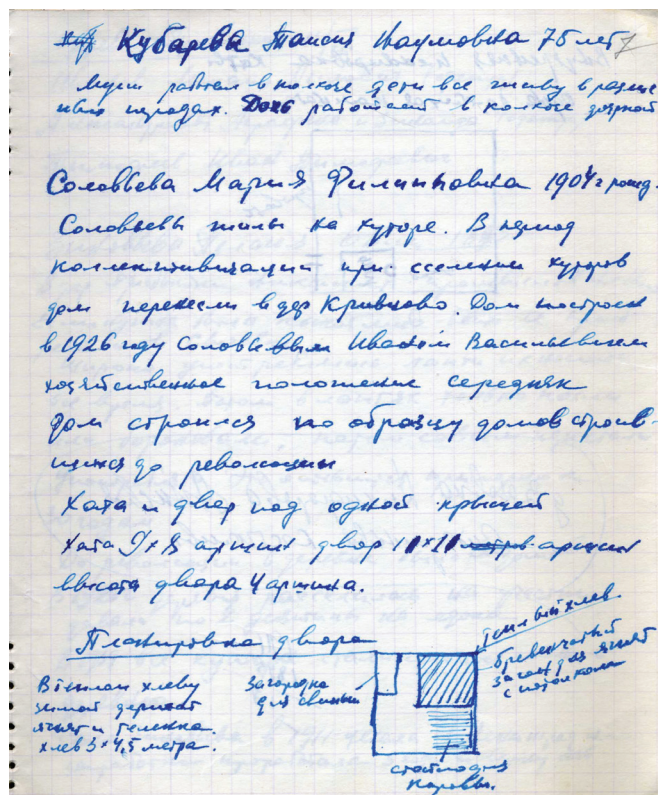 Кубарева Таисия Наумовна 75 лет
Муж работал в колхозе дети все живу в разны
ных городах. Дочь работает в колхозе дояркой
Соловьева Мария Филипповна 1904 г рожд.
Соловьевы жили на хуторе. В период
коллективизации при сселении хуторов
дом перенесли в дер Кривцово. Дом построен
в 1926 году Соловьевым Иваном Васильевичем
хозяйственное положение середняк
Дом строился по образцу домов строив-
шихся до революции
Хата и двор под одной крышей
Хата 9 х 8 аршин двор 11 х 11 метров аршин
высота двора 4 аршина.
Планировка двора
теплый хлев
бревенчатый
загон для ягнят
с потолком
Загородка
для свиньи
В теплом хлеву
зимой держат
ягнят и теленка
хлев 3 х 4,5 метра.
стойло для
коровы.